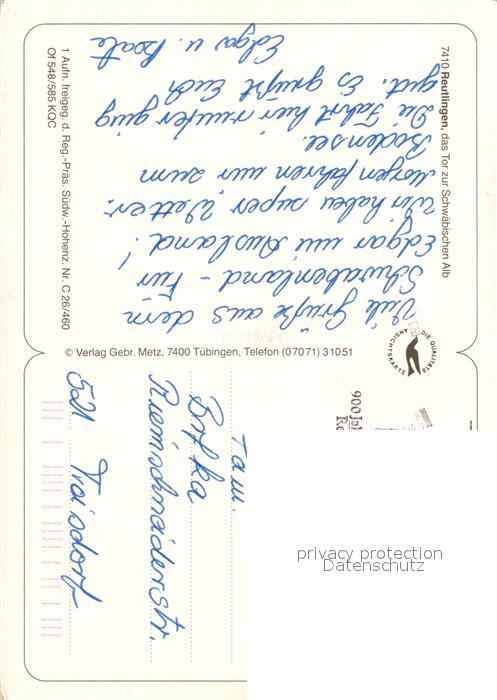 7410 Reutlingen, das Tor zur Schwäbischen Alb
Viele Grüße aus dem
Schwabenland - für
Edgar uni Ausland!
Wir haben super Wetter.
Morgen fahren wir zum
Bodensee.
Die Fahrt hier runter ging
gut. Es grüßt Euch
Edgar u. Beate
1 Aufn. freigeg. d. Reg.-Präs. Südw.-Hohenz. Nr. C 26/460
Of 548/585 KQC
© Verlag Gebr. Metz, 7400 Tübingen, Telefon (07071) 31051
DIE QUALITÄTS
ANSICHTSKARTE
900 Ja
Re
Fam.
Riemschneiderstr.
521 Troisdorf
privacy protection
Datenschutz